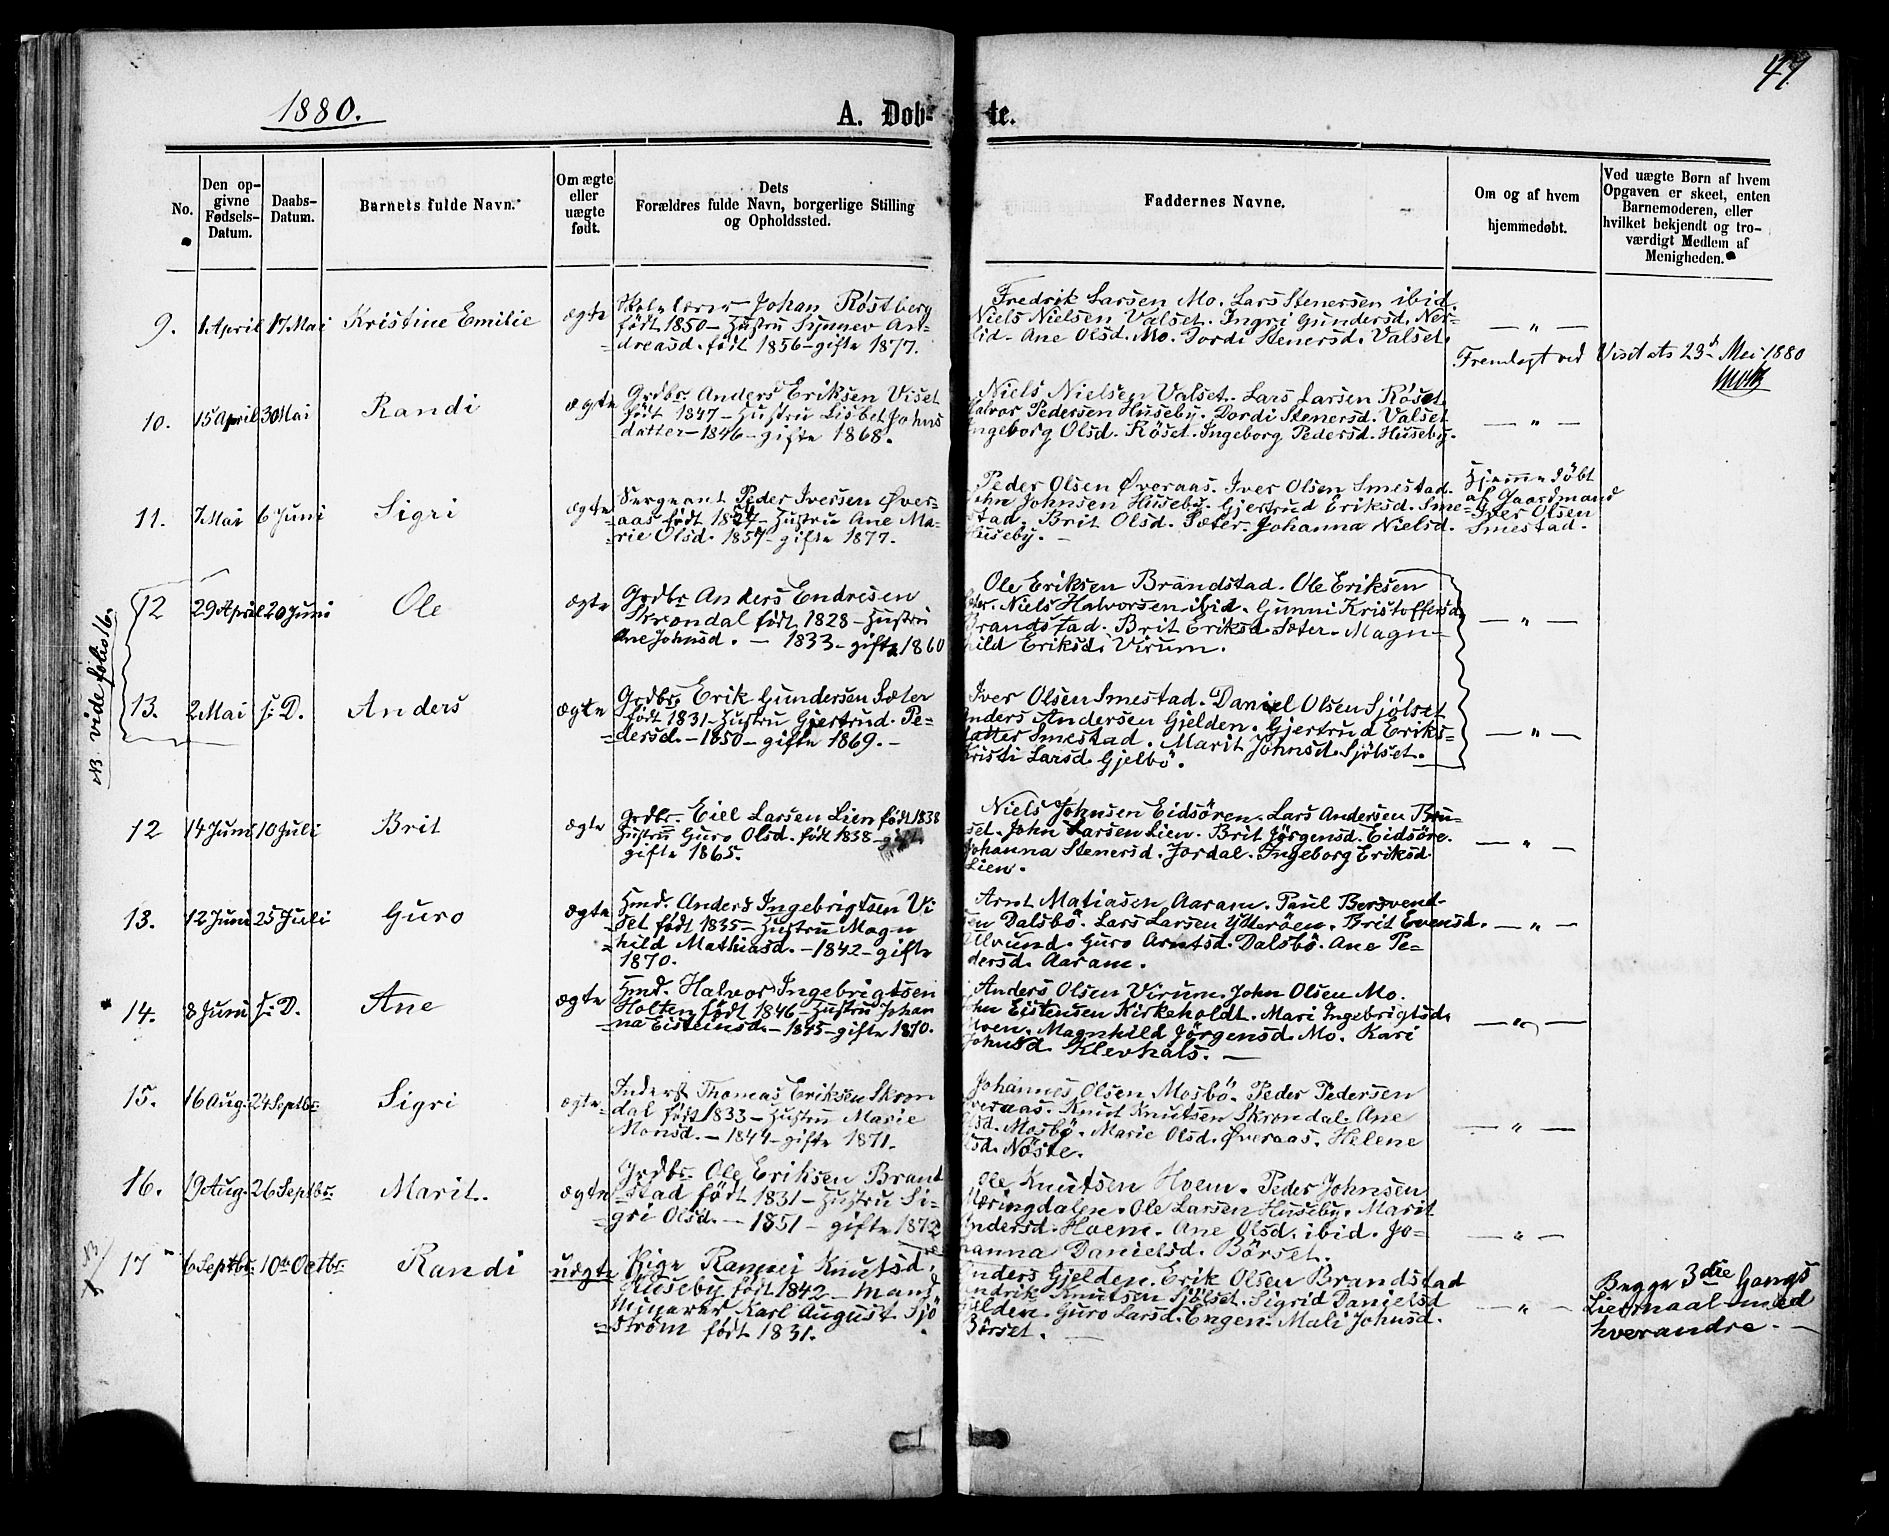 1880.
A. Døb-
te.
47
No.
Den op-
givne
Fødsels-
Datum.
Daabs-
Datum.
Barnets fulde Navn.
Om ægte
eller
uægte
født.
Dets
Forældres fulde Navn, borgerlige Stilling
og Opholdssted.
Faddernes Navne.
Om og af hvem
hjemmedøbt.
Ved uægte Børn af hvem
Opgaven er skeet, enten
Barnemoderen, eller
hvilket bekjendt og tro-
værdigt Medlem af
Menigheden.
9. 1 April 17 Mai Kristine Emilie ægte
Skolelærer Johan Røstberg
født 1850 - Hustru Synnev An-
dreasd. født 1856 - gifte 1877.
Fredrik Larsen Mo. Lars Stenersen ibid.
Niels Nielsen Valset. Ingri Gundersd. Ner-
lid. Ane Olsd. Mo. Dordi Stenersd. Valset.
— „ —
Fremlagt ved Visitats 23de Mai 1880
10. 15 April 30 Mai Randi ægte
Grdbr. Anders Eriksen Viset
født 1847 - Hustru Lisbet Johns
datter - 1846 - gifte 1868.
Niels Nielsen Valset. Lars Larsen Røset.
Halvor Pedersen Huseby. Dordi Stenersd. Valset
Ingeborg Olsd. Røset. Ingeborg Pedersd. Huseby.
— „ —
11. 7 Mai 6 Juni Sigri ægte
Sergeant Peder Iversen Øver-
aas født - Hustru Ane Ma-
rie Olsd. 1857 - gifte 1877.
Peder Olsen Øveraas. Iver Olsen Smestad.
John Johnsen Huseby. Gjertrud Eriksd. Sme-
stad. Brit Olsd. Sæter. Johanna Nielsd.
Huseby. —
Hjemmedøbt
af Gaardmand
Iver Olsen
Smestad.
NB vide folio 16.
12 29 April 20 Juni Ole ægte
Grdbr Anders Endresen
Skrondal født 1828 - Hustru
Ane Johnsd. - 1833 - gifte 1860
Ole Eriksen Brandstad. Ole Eriksen
Sæter. Niels Halvorsen ibid. Gunni Kristoffersd.
Brandstad. Brit Eriksd. Sæter. Magn-
hild Eriksd. Virum.
— „ —
13. 2 Mai s: D. Anders ægte
Grdbr. Erik Gundersen Sæter
født 1831 - Hustru Gjertrud Pe-
dersd. - 1850 - gifte 1869. -
Iver Olsen Smestad. Daniel Olsen Sjølset
Anders Andersen Gjelden. Gjertrud Eriks-
datter Smestad. Marit Johnsd. Sjølset.
Kristi Larsd. Gjelbö.
— „ —
12 14 Juni 10 Juli Brit ægte
Grdbr. Eiel Larsen Lien født 1838
Hustru Guro Olsd. født 1838 -
gifte 1865.
Niels Johnsen Eidsören. Lars Andersen Bru-
set. John Larsen Lien. Brit Jørgensd. Eidsöre.
Johanna Stenersd. Jordal. Ingeborg Eriksd.
Lien.
— „ —
13. 12 Juni 25 Juli Guro ægte
Hmd. Anders Ingebrigtsen Vi
set født 1835 - Hustru Magn
hild Mathiasd. - 1842 - gifte
1870.
Arnt Matiasen Aaram. Paul Bersvend-
sen Dalsbö. Lars Larsen Ytterøen. Brit Evensd.
Ulvund. Guro Arntsd. Dalsbö. Ane Pe-
dersd. Aaram.
— „ —
14. 8 Juni s: D. Ane ægte
Hmd. Halvor Ingebrigtsen
Holten født 1846 - Hustru Johan
na Eisteinsd. - 1845 - gifte 1870.
Anders Olsen Virum. John Olsen Mo.
John Eistensen Kirkeholdt. Mari Ingebrigtsd.
Magnhild Jørgensd. Mo. Kari
Johnsd. Klevhals. —
— „ —
15. 16 Aug. 24 Septbr Sigri ægte
Inderst Thomas Eriksen Skron
dal født 1833 - Hustru Marie
Monsd. - 1844 - gifte 1871.
Johannes Olsen Mosbö. Peder Pedersen
Øveraas. Knut Knutsen Skrondal. Ane
Olsd. Mosbö. Marie Olsd. Øveraas. Helene
Olsd. Nöste.
— „ —
16. 19 Aug. 26 Septbr. Marit. ægte
Grdbr Ole Eriksen Brand
stad født 1831 - Hustru Si-
gri Olsd. - 1851 - gifte 1872
Ole Knutsen Hoem. Peder Johnsen
Mæringdalen. Ole Larsen Huseby. Marit
Andersd. Hoem. Ane Olsd. ibid. Jo-
hanna Danielsd. Börset.
— „ —
NB
17 6 Septbr. 10de Octbr. Randi uægte
Pige Rannei Knutsd.
Huseby født 1842 - Mand
Minører Karl August Sjö
ström født 1831.
Anders Gjelden. Erik Olsen Brandstad
Endrik Knutsen Sjölset. Sigrid Danielsd
Gjelden. Guro Larsd. Engen. Mali Johnsd.
Börset. —
— „ —
Begge 3die Gangs
Leiermaal med
hverandre. —